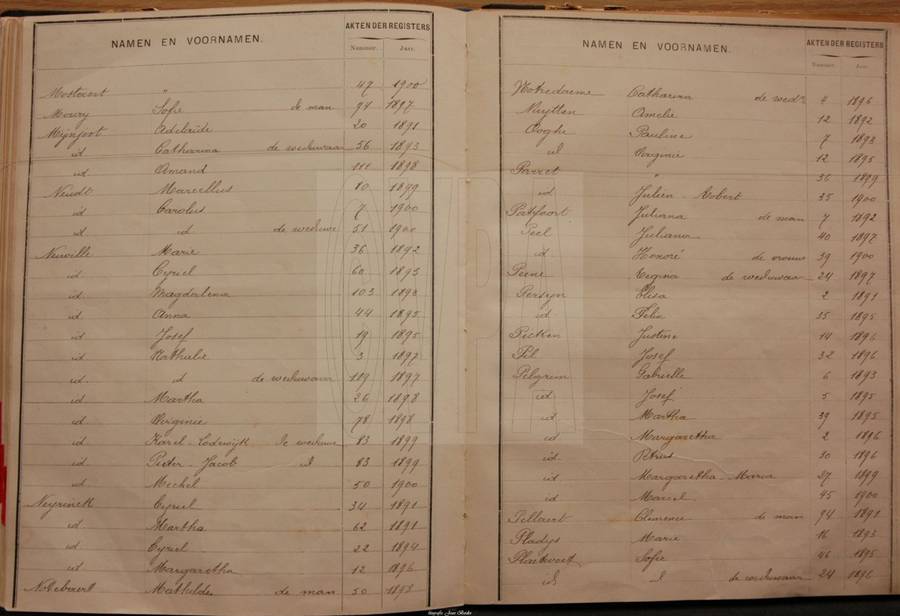 NAMEN EN VOORNAMEN. AKTEN DER REGISTERS
Nummer. Jaar.
Mostaert " 47 1900
Moury Sofie de man 94 1897
Mijnpot Adelaïde 20 1891
id Catharina de weduwaar 56 1893
id Amand 111 1898
Neudt Marcellus 80 1899
id Carolus 7 1900
id id de weduwe 51 1900
Neuville Marie 36 1892
id Cyriel 60 1893
id Magdalena 103 1893
id Anna 44 1895
id Josef 19 1895
id Nathalie 3 1897
id id de weduwaar 119 1897
id Martha 26 1898
id Virginie 78 1898
id Karel-Lodewijk de weduwe 83 1899
id Pieter-Jacob id 83 1899
id Michel 50 1900
Neyrinck Cyriel 34 1891
id Martha 62 1891
id Cyriel 22 1894
id Margaretha 12 1896
Mathilde de man 50 1898
NAMEN EN VOORNAMEN. AKTEN DER REGISTERS
Nummer. Jaar.
Notredaeme Catharina de wedr 4 1896
Nuytten Amelie 12 1892
Ooghe Pauline 7 1893
id Virginie 12 1895
Parret " 36 1899
id Julien-Robert 35 1900
Patfoort Juliana de man 7 1892
Peel Juliana 40 1897
id Honoré de vrouw 39 1900
Peene Regina de weduwaar 24 1897
Persyn Elisa 2 1891
id Felix 35 1895
Pieken Justine 14 1896
Pil Josef 32 1896
Pelgrim Gabrielle 6 1893
id Josef 5 1895
id Martha 39 1895
id Margaretha 2 1896
id Petrus 30 1896
id Margaretha-Maria 37 1899
id Marcel 45 1900
Pillaert Clemence de man 94 1891
Pladys Marie 16 1893
Plankeel Sofie 46 1895
id id de weduwaar 24 1896